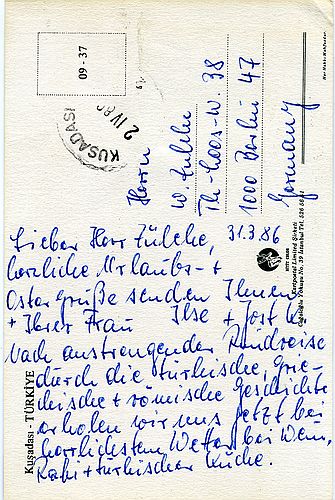 09 - 37
KUSADASI
Herrn
W. Zulche
Th-Loos-W. 38
1000 Berlin 47
Germany
Lieber Herr Zulche, 31.3.86
herzliche Urlaubs- +
Ostergrüße senden Ihnen
+ Ihrer Frau Ilse + Jost K.
Nach anstrengender Rundreise
durch die türkische, grie-
chische + römische Geschichte
erholen wir uns jetzt bei
herrlichstem Wetter bei Wein,
Raki + türkischer Küche.
Kuşadası - TÜRKİYE
Kartpostal Limited Şirketi